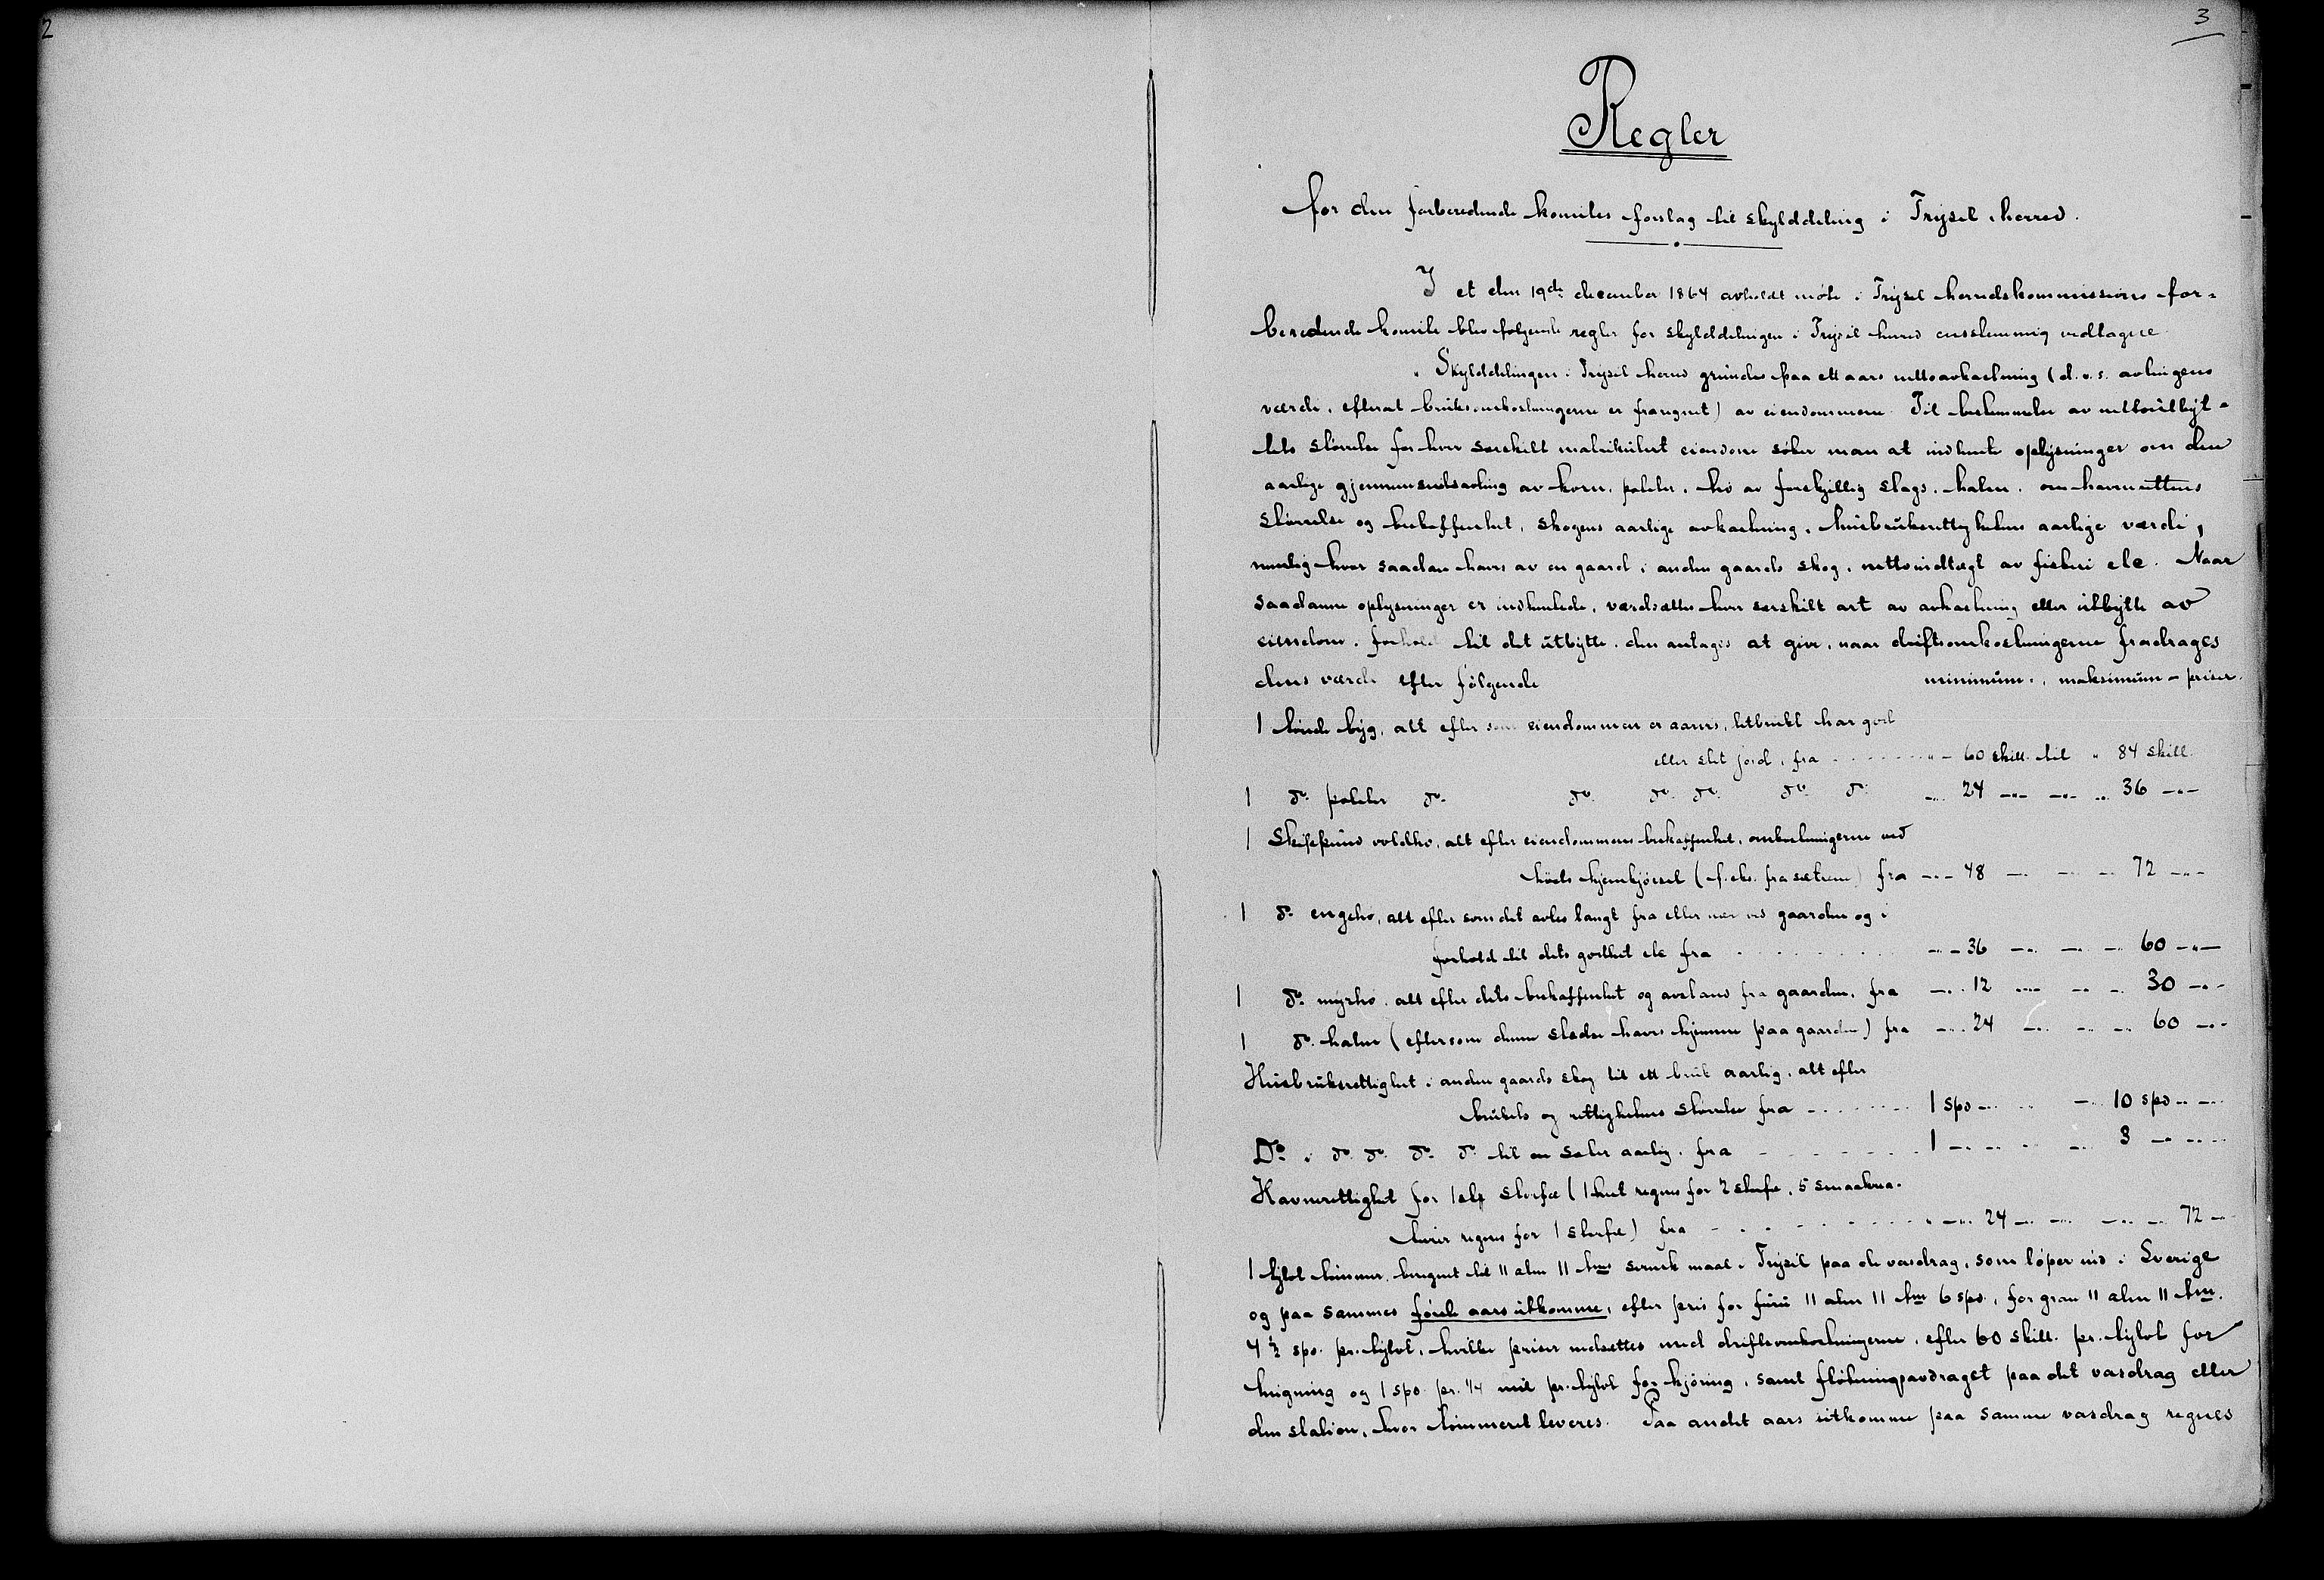 2
3
Regler
for den forberedende komites forslag til skylddeling i Trysil herred.
I et den 19de december 1864 avholdt møte i Trysil herredskommissions for-
beredende komite blev følgende regler for skylddelingen i Trysil herred enstemmig vedtagne
" Skylddelingen i Trysil herred grundes paa ett aars nettoavkastning (d.v.s. avlingens
værdi, efterat bruksomkostningerne er fraregnet) av eiendommene. Til bestemmelse av nettoutbyt-
tets størrelse for hver særskilt matrikulert eiendom søker man at indhente oplysninger om den
aarlige gjennemsnitsavling av korn, poteter, hø av forskjellig slags, halm, om havnerettens
størrelse og beskaffenhet, skogens aarlige avkastning, husbruksrettighetens aarlige værdi,
nemlig hvor saadan haves av en gaard i anden gaards skog, nettoindtægt av fiskeri etc. Naar
saadanne oplysninger er indhentede, værdsættes hver særskilt art av avkastning eller utbytte av
eiendom i forhold til det utbytte, den antages at give, naar driftsomkostningerne fradrages
dens værdi efter følgende minimums, maksimum-priser.
1 tønde byg, alt efter som eiendommen er aarvis, letbrukt har god
eller slet jord, fra " - 60 skill. til " 84 skill.
1 do. poteter do. do. do. do. do. do. -"- 24 -"- -"- " 36 -"-
1 Skippund voldhø, alt efter eiendommens beskaffenhet, omkostningerne ved
høets hjemkjørsel (f.eks. fra sætrene) fra -"- 48 -"- -"- 72 -"-
1 do. enghø, alt efter som det avles langt fra eller nær ved gaarden og i
forhold til dets godhet etc fra -"- 36 -"- -"- 60 -"-
1 do. myrhø, alt efter dets beskaffenhet og avstand fra gaarden, fra -"- 12 -"- -"- 30 -"-
1 do. halm (eftersom denne stedse haves hjemme paa gaarden) fra -"- 24 -"- -"- 60 -"-
Husbruksrettighet i anden gaards skog til ett bruk aarlig, alt efter
brukets og rettighetens størrelse fra 1 spd -"- -"- 10 spd -"-
Do. i do. do. do. do. til en sæter aarlig, fra 1 -"- -"- 3 -"-
Havnerettighet for 1 stk storfæ (1 hest regnes for 2 storfæ, 5 smaakrea-
turer regnes for 1 storfæ) fra " -"- 24 -"- -"- 72 -"-
1 tylvt tømmer, beregnet til 11 alen 11 tms svensk maal i Trysil paa de vasdrag, som løper ind i Sverige
og paa sammes første aars utkomme, efter pris for furu 11 alen 11 tm 6 spd., for gran 11 alen 11 tm.
4 ½ spd. pr. tylvt, hvilke priser nedsættes med driftsomkostningerne, efter 60 skill. pr. tylvt for
hugning og 1 spd. pr. 1/4 mil pr. tylvt for kjøring, samt fløtningsavdraget paa det vasdrag eller
den station, hvor tømmeret leveres. Paa andet aars utkomme paa samme vasdrag regnes